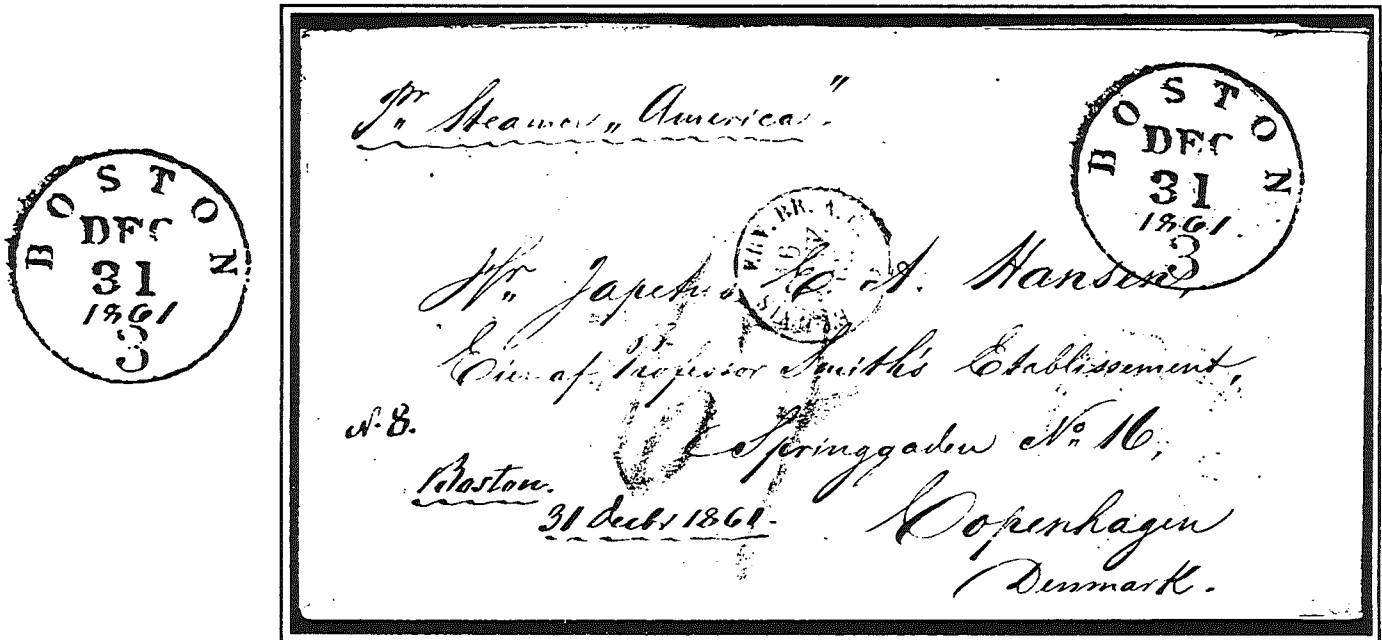 BOSTON
DEC
31
1861
3
Pr Steamer „America".
BOSTON
DEC
31
1861.
3
BR. A.
Hr. Japetus A. Hansen,
af Professor Smith's Etablissement,
N. 8.
Springgaden No 16,
Boston.
31 Decbr 1861.
Copenhagen
Denmark.